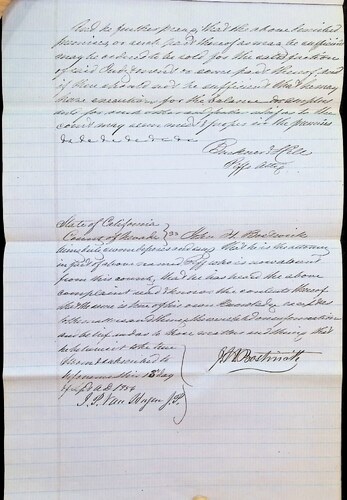 And he further prays that the above described
premises or such part thereof as may be sufficient
may be ordered to be sold for the satisfaction
of said Judgment or some part thereof, and
if there should not be sufficient that he may
have execution for the balance
and for such other and further relief as to the
court may seem meet & proper in the premises
&c &c &c &c &c &c
Plffs Atty
State of California
County of Nevada } ss John H Bostwick
being duly sworn deposes and says that he is the attorney
in fact of above named Plff who is now absent
from this county, that he has heard the above
complaint and knows the contents thereof
that the same is true of his own knowledge except as
to the matters therein stated on information
and belief and as to those matters and things that
he believes it to be true
Subscribed & sworn to
before me this 18 day
of A D 1854
J. H. Bostwick
J. P. Van Hagen J.P.